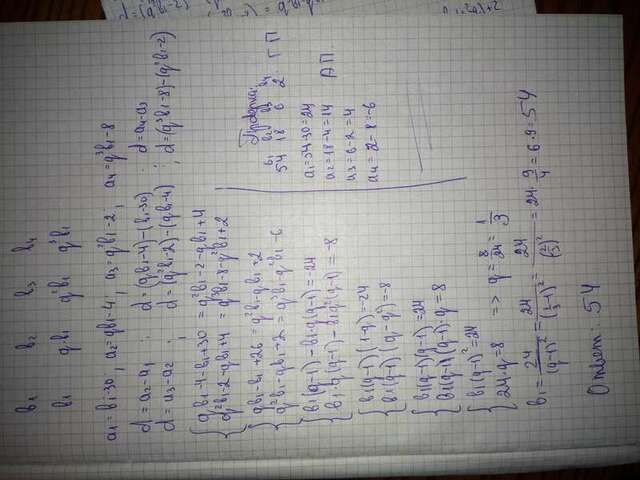 b₁ b₂ b₃ b₄
b₁ qb₁ q²b₁ q³b₁
a₁=b₁-30; a₂=qb₁-4; a₃=q²b₁-2; a₄=q³b₁-8
d=a₂-a₁; d=(qb₁-4)-(b₁-30); d=a₄-a₃
d=a₃-a₂; d=(q²b₁-2)-(qb₁-4); d=(q³b₁-8)-(q²b₁-2)
{ qb₁-4-b₁+30=q²b₁-2-qb₁+4
q²b₁-2-qb₁+4=q³b₁-8-q²b₁+2
{ qb₁-b₁+26=q²b₁-qb₁+2
q²b₁-qb₁+2=q³b₁-q²b₁-6
{ b₁(q-1)-b₁q(q-1)=-24
b₁q(q-1)-b₁q²(q-1)=-8
{ b₁(q-1)(1-q)=-24
b₁(q-1)(q-q²)=-8
{ b₁(q-1)(q-1)=24
b₁(q-1)(q-1)q=8
{ b₁(q-1)²=24
24·q=8 => q=8/24=1/3
b₁=24/(q-1)²=24/(1/3-1)²=24/(2/3)²=24·9/4=6·9=54
Ответ: 54
Проверка:
b₁ b₂ b₃ b₄
54 18 6 2 ГП
a₁=54-30=24
a₂=18-4=14
a₃=6-2=4
a₄=2-8=-6
АП